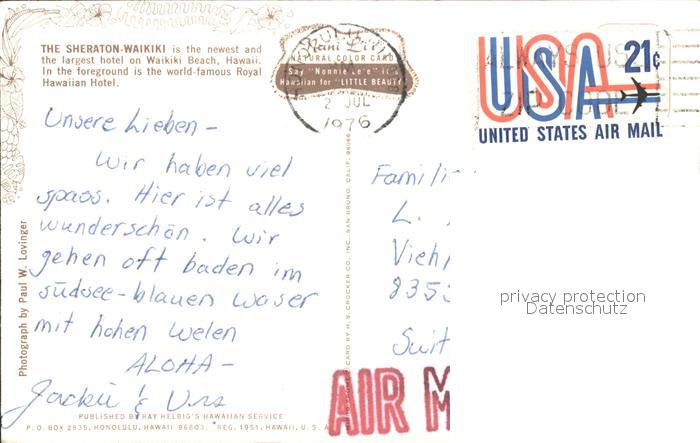 THE SHERATON-WAIKIKI is the newest and
the largest hotel on Waikiki Beach, Hawaii.
In the foreground is the world-famous Royal
Hawaiian Hotel.
Nani Li'i
NATURAL COLOR CARD
Say "Nonnie Le'e" it's
Hawaiian for "LITTLE BEAUTY"
HONOLULU
2 JUL
1976
ALWAYS USE
ZIP CODE
USA 21¢
UNITED STATES AIR MAIL
Unsere Lieben -
Wir haben viel
spass. Hier ist alles
wunderschön. Wir
gehen oft baden im
südsee-blauen Waser
mit hohen Welen
ALOHA -
Jackie & Urs
Famili
L.
Vieh
835
Suit
privacy protection
Datenschutz
AIR M
Photograph by Paul W. Lovinger
CARD BY H. S. CROCKER CO., INC., SAN BRUNO, CALIF. 94066
PUBLISHED BY RAY HELBIG'S HAWAIIAN SERVICE
P. O. BOX 2835, HONOLULU, HAWAII 96803. REG. 1951, HAWAII, U. S. A